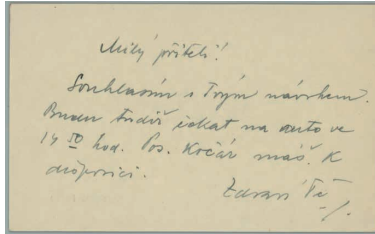 Milý příteli!
Souhlasím s Tvým návrhem.
Budu tudíž čekat na auto ve
14 50 hod. Pos. Kočár máš. K
Zdraví Tě